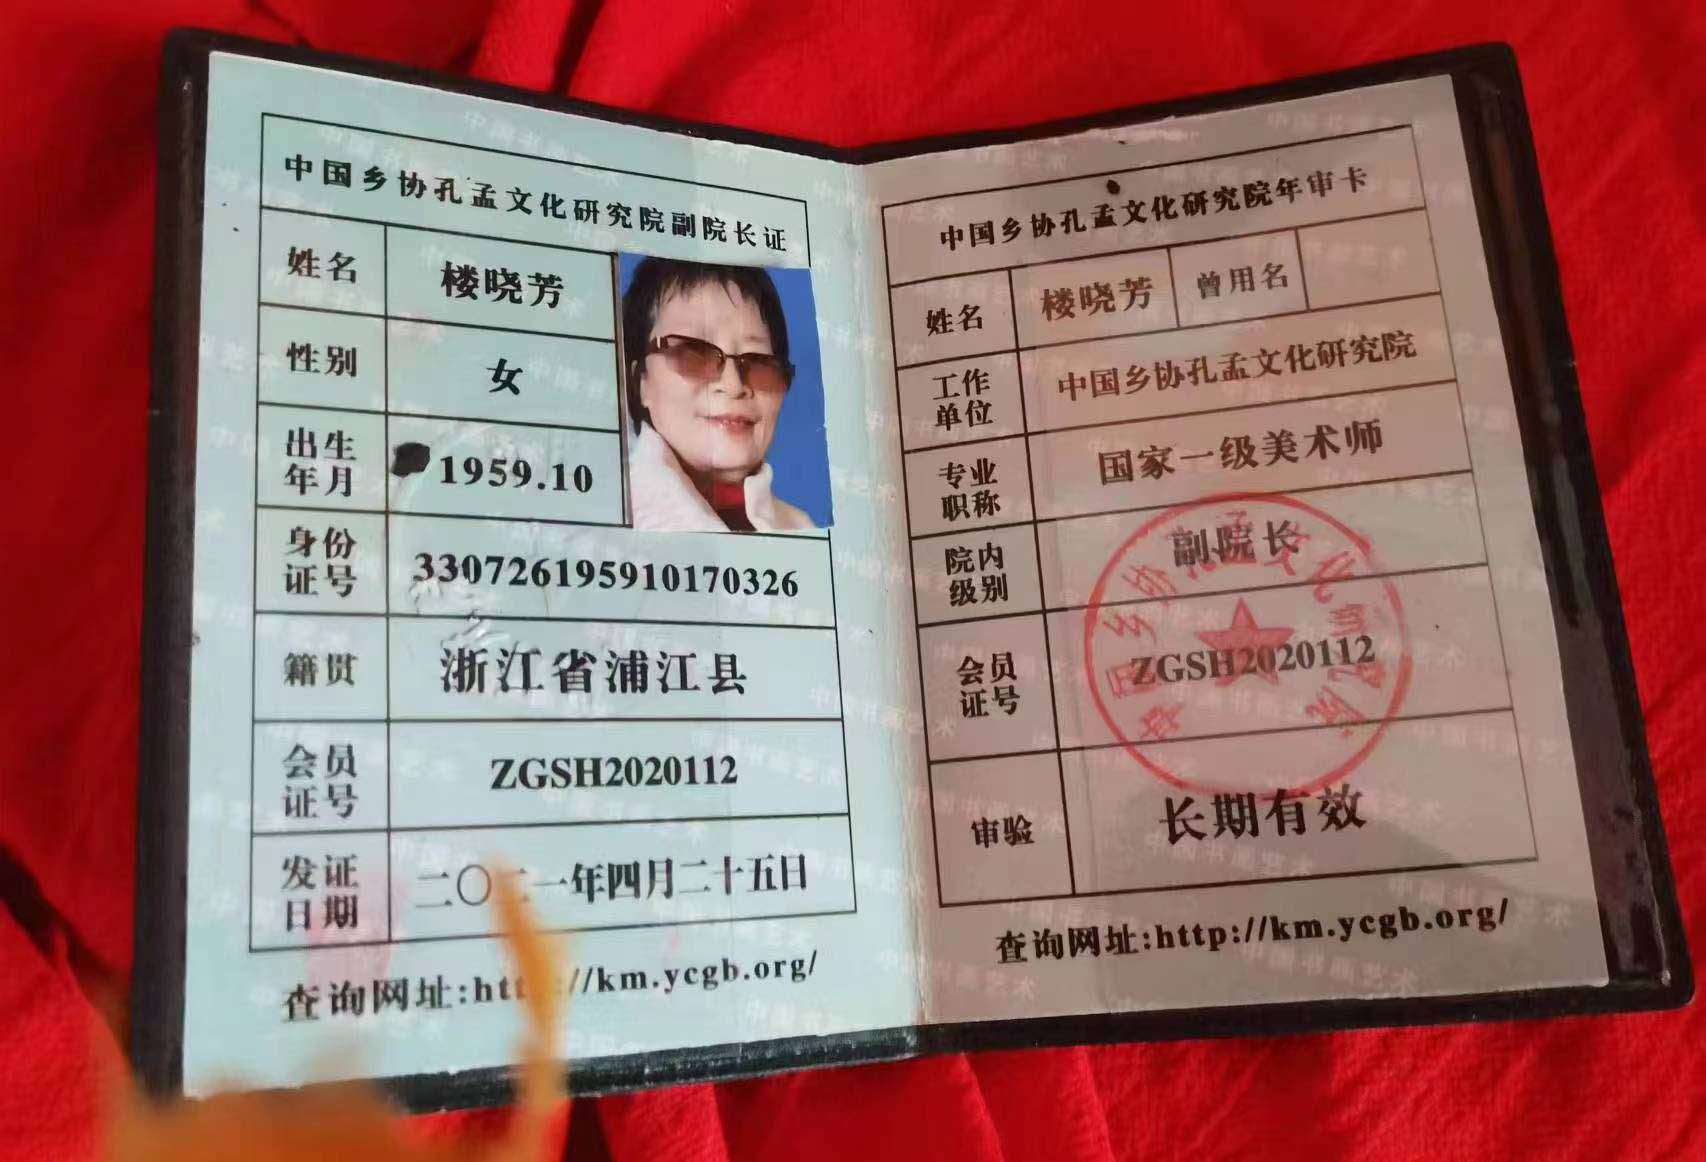 中国乡协孔孟文化研究院副院长证
姓名 楼晓芳
性别 女
出生年月 1959.10
身份证号 330726195910170326
籍贯 浙江省浦江县
会员证号 ZGSH2020112
发证日期 二〇二一年四月二十五日
查询网址:http://km.ycgb.org/
中国乡协孔孟文化研究院年审卡
姓名 楼晓芳 曾用名
工作单位 中国乡协孔孟文化研究院
专业职称 国家一级美术师
院内级别 副院长
会员证号 ZGSH2020112
审验 长期有效
查询网址:http://km.ycgb.org/
中国乡协孔孟文化研究院